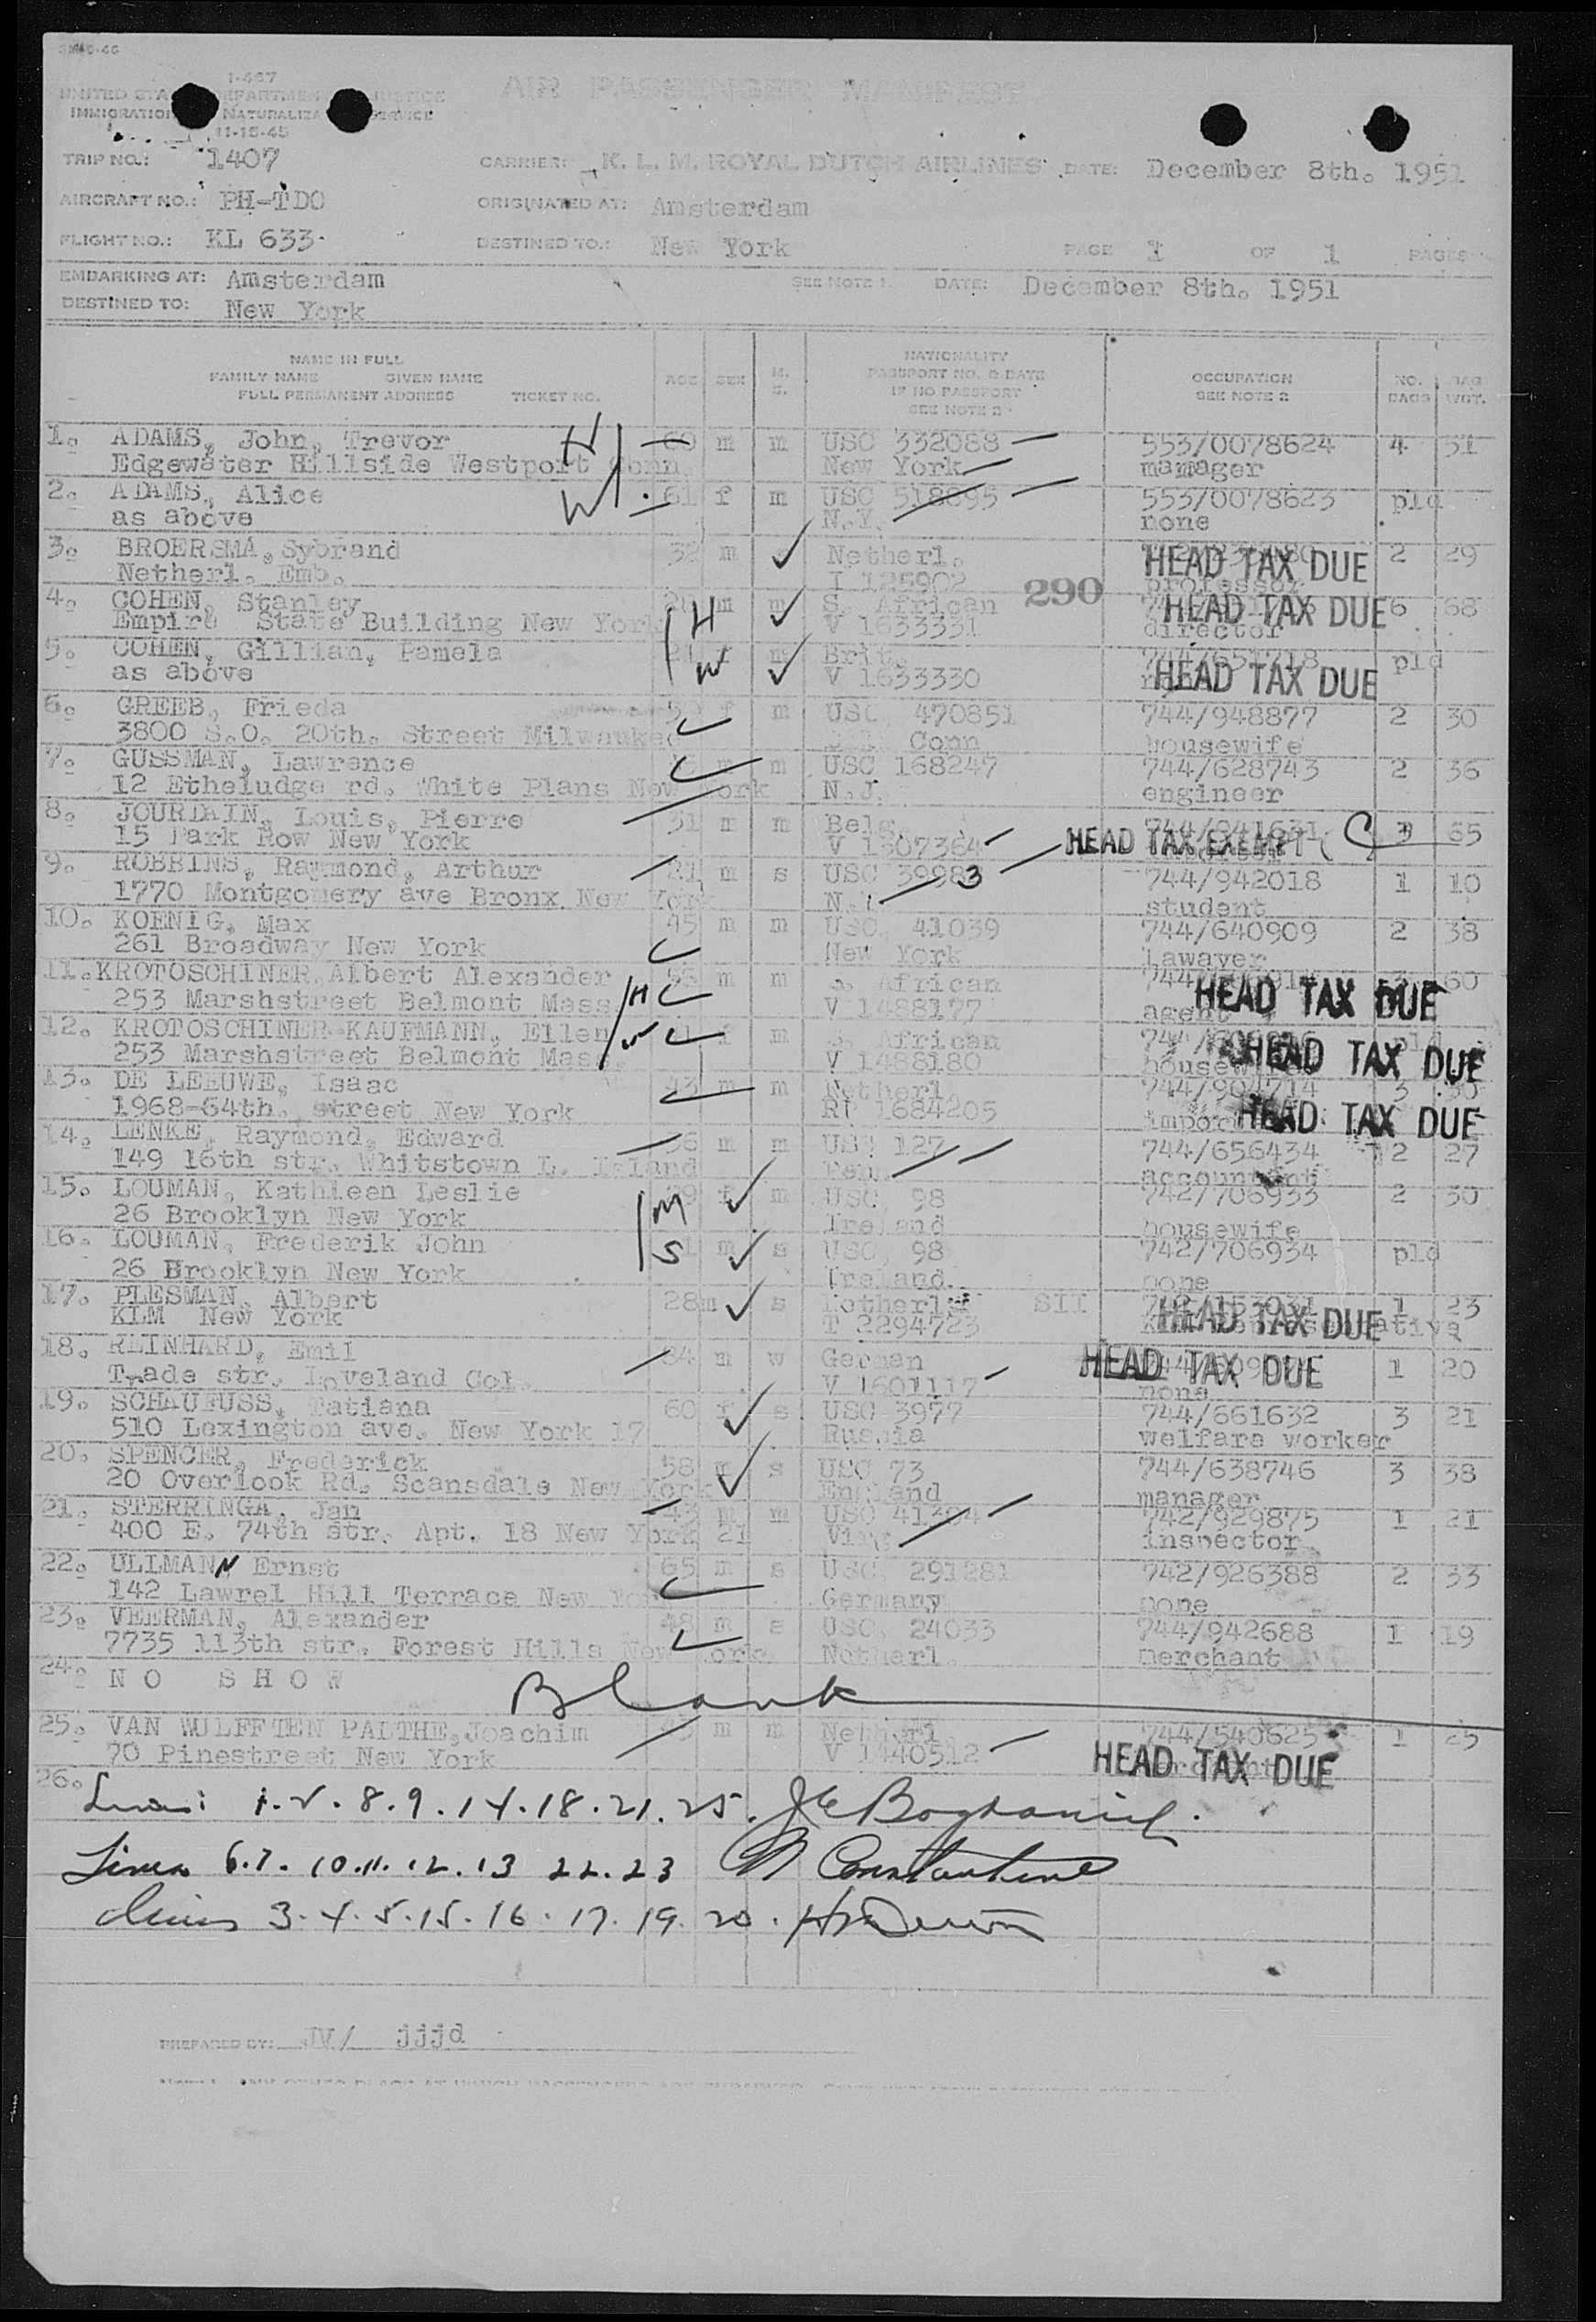 I-467
UNITED STATES DEPARTMENT OF JUSTICE
IMMIGRATION NATURALIZATION SERVICE
11-15-45
AIR PASSENGER MANIFEST
TRIP NO.: 1407 CARRIER: K. L. M. ROYAL DUTCH AIRLINES DATE: December 8th. 1951
AIRCRAFT NO.: PH-TDO ORIGINATED AT: Amsterdam
FLIGHT NO.: KL 633 DESTINED TO.: New York PAGE 1 OF 1 PAGES
EMBARKING AT: Amsterdam SEE NOTE 1. DATE: December 8th. 1951
DESTINED TO: New York
NAME IN FULL
FAMILY NAME GIVEN NAME
FULL PERMANENT ADDRESS TICKET NO.
AGE SEX M. S.
NATIONALITY
PASSPORT NO. & DATE
IF NO PASSPORT
SEE NOTE 3
OCCUPATION
SEE NOTE 2
NO. BAGS BAG WGT.
1. ADAMS, John, Trevor H 60 m m USC 332088 553/0078624 4 51
Edgewater Hillside Westport Conn. New York mamager
2. ADAMS, Alice W 61 f m USC 518895 553/0078623 pld
as above N.Y. none
3. BROERSMA, Sybrand 32 m Netherl. HEAD TAX DUE 2 29
Netherl. Emb. I 125902 professor
290
4. COHEN, Stanley H m m S. African HEAD TAX DUE 6 68
Empire State Building New York V 1633331 director
5. COHEN, Gillian, Pamela W 21 f m Brit. 744/651718 pld
as above V 1633330 HEAD TAX DUE
6. GREEB, Frieda 50 f m USC, 470851 744/948877 2 30
3800 S.O. 20th. Street Milwaukee Conn housewife
7. GUSSMAN, Lawrence m m USC 168247 744/628743 2 36
12 Etheludge rd. White Plans New York N.J. engineer
8. JOURDAIN, Louis, Pierre 31 m m Belg. 744/941631 65
15 Park Row New York V 1307364 HEAD TAX EXEMPT
9. ROBBINS, Raymond, Arthur 21 m s USC 39983 3 744/942018 1 10
1770 Montgomery ave Bronx New York N.Y. student
10. KOENIG, Max 45 m m USC, 41039 744/640909 2 38
261 Broadway New York New York Lawayer
11. KROTOSCHINER, Albert Alexander 55 m m S. African HEAD TAX DUE 60
253 Marshstreet Belmont Mass H V 1488177 agent
12. KROTOSCHINER-KAUFMANN, Ellen f m S. African pld
253 Marshstreet Belmont Mass. W V 1488180 housewife HEAD TAX DUE
13. DE LEEUWE, Isaac 43 m m Netherl. 744/904714 3 30
1968-64th. street New York RP 1684205 HEAD TAX DUE
14. LENKE, Raymond, Edward 36 m m USC 127 744/656434 2 27
149 16th str. Whitstown L. Island Pen. accountant
15. LOUMAN, Kathleen Leslie M 39 f m USC, 98 742/706933 2 30
26 Brooklyn New York Ireland housewife
16. LOUMAN, Frederik John S m s USC, 98 742/706934 pld
26 Brooklyn New York Ireland. none
17. PLESMAN, Albert 28 m s Netherl. SII HEAD TAX DUE 1 23
KLM New York T 2294723
18. REINHARD, Emil 34 m w German HEAD TAX DUE 1 20
Trade str. Loveland Col. V 1601117 none
19. SCHAUFUSS, Tatiana 60 f s USC 3977 744/661632 3 21
510 Lexington ave. New York 17 Russia welfare worker
20. SPENCER, Frederick 58 m s USC 73 744/638746 3 38
20 Overlook Rd. Scansdale New York England manager
21. STERRINGA, Jan 43 m m USC 742/929875 1 21
400 E. 74th str. Apt. 18 New York 21 inspector
22. ULLMANN Ernst 65 m s USC, 291281 742/926388 2 33
142 Lawrel Hill Terrace New York Germany none
23. VEERMAN, Alexander 48 m s USC, 24033 744/942688 1 19
7735 113th str. Forest Hills New York Netherl. merchant
24. NO SHOW Blank
25. VAN WULFFTEN PALTHE, Joachim m m Netherl 744/540625 1 25
70 Pinestreet New York V 1440512 HEAD TAX DUE
26.
Lines: 1. 2. 8. 9. 14. 18. 21. 25.
Lines 6. 7. 10. 11. 12. 13 22. 23 Constantine
Lines 3. 4. 5. 15. 16. 17. 19. 20.
PREPARED BY: JV/ jjjd